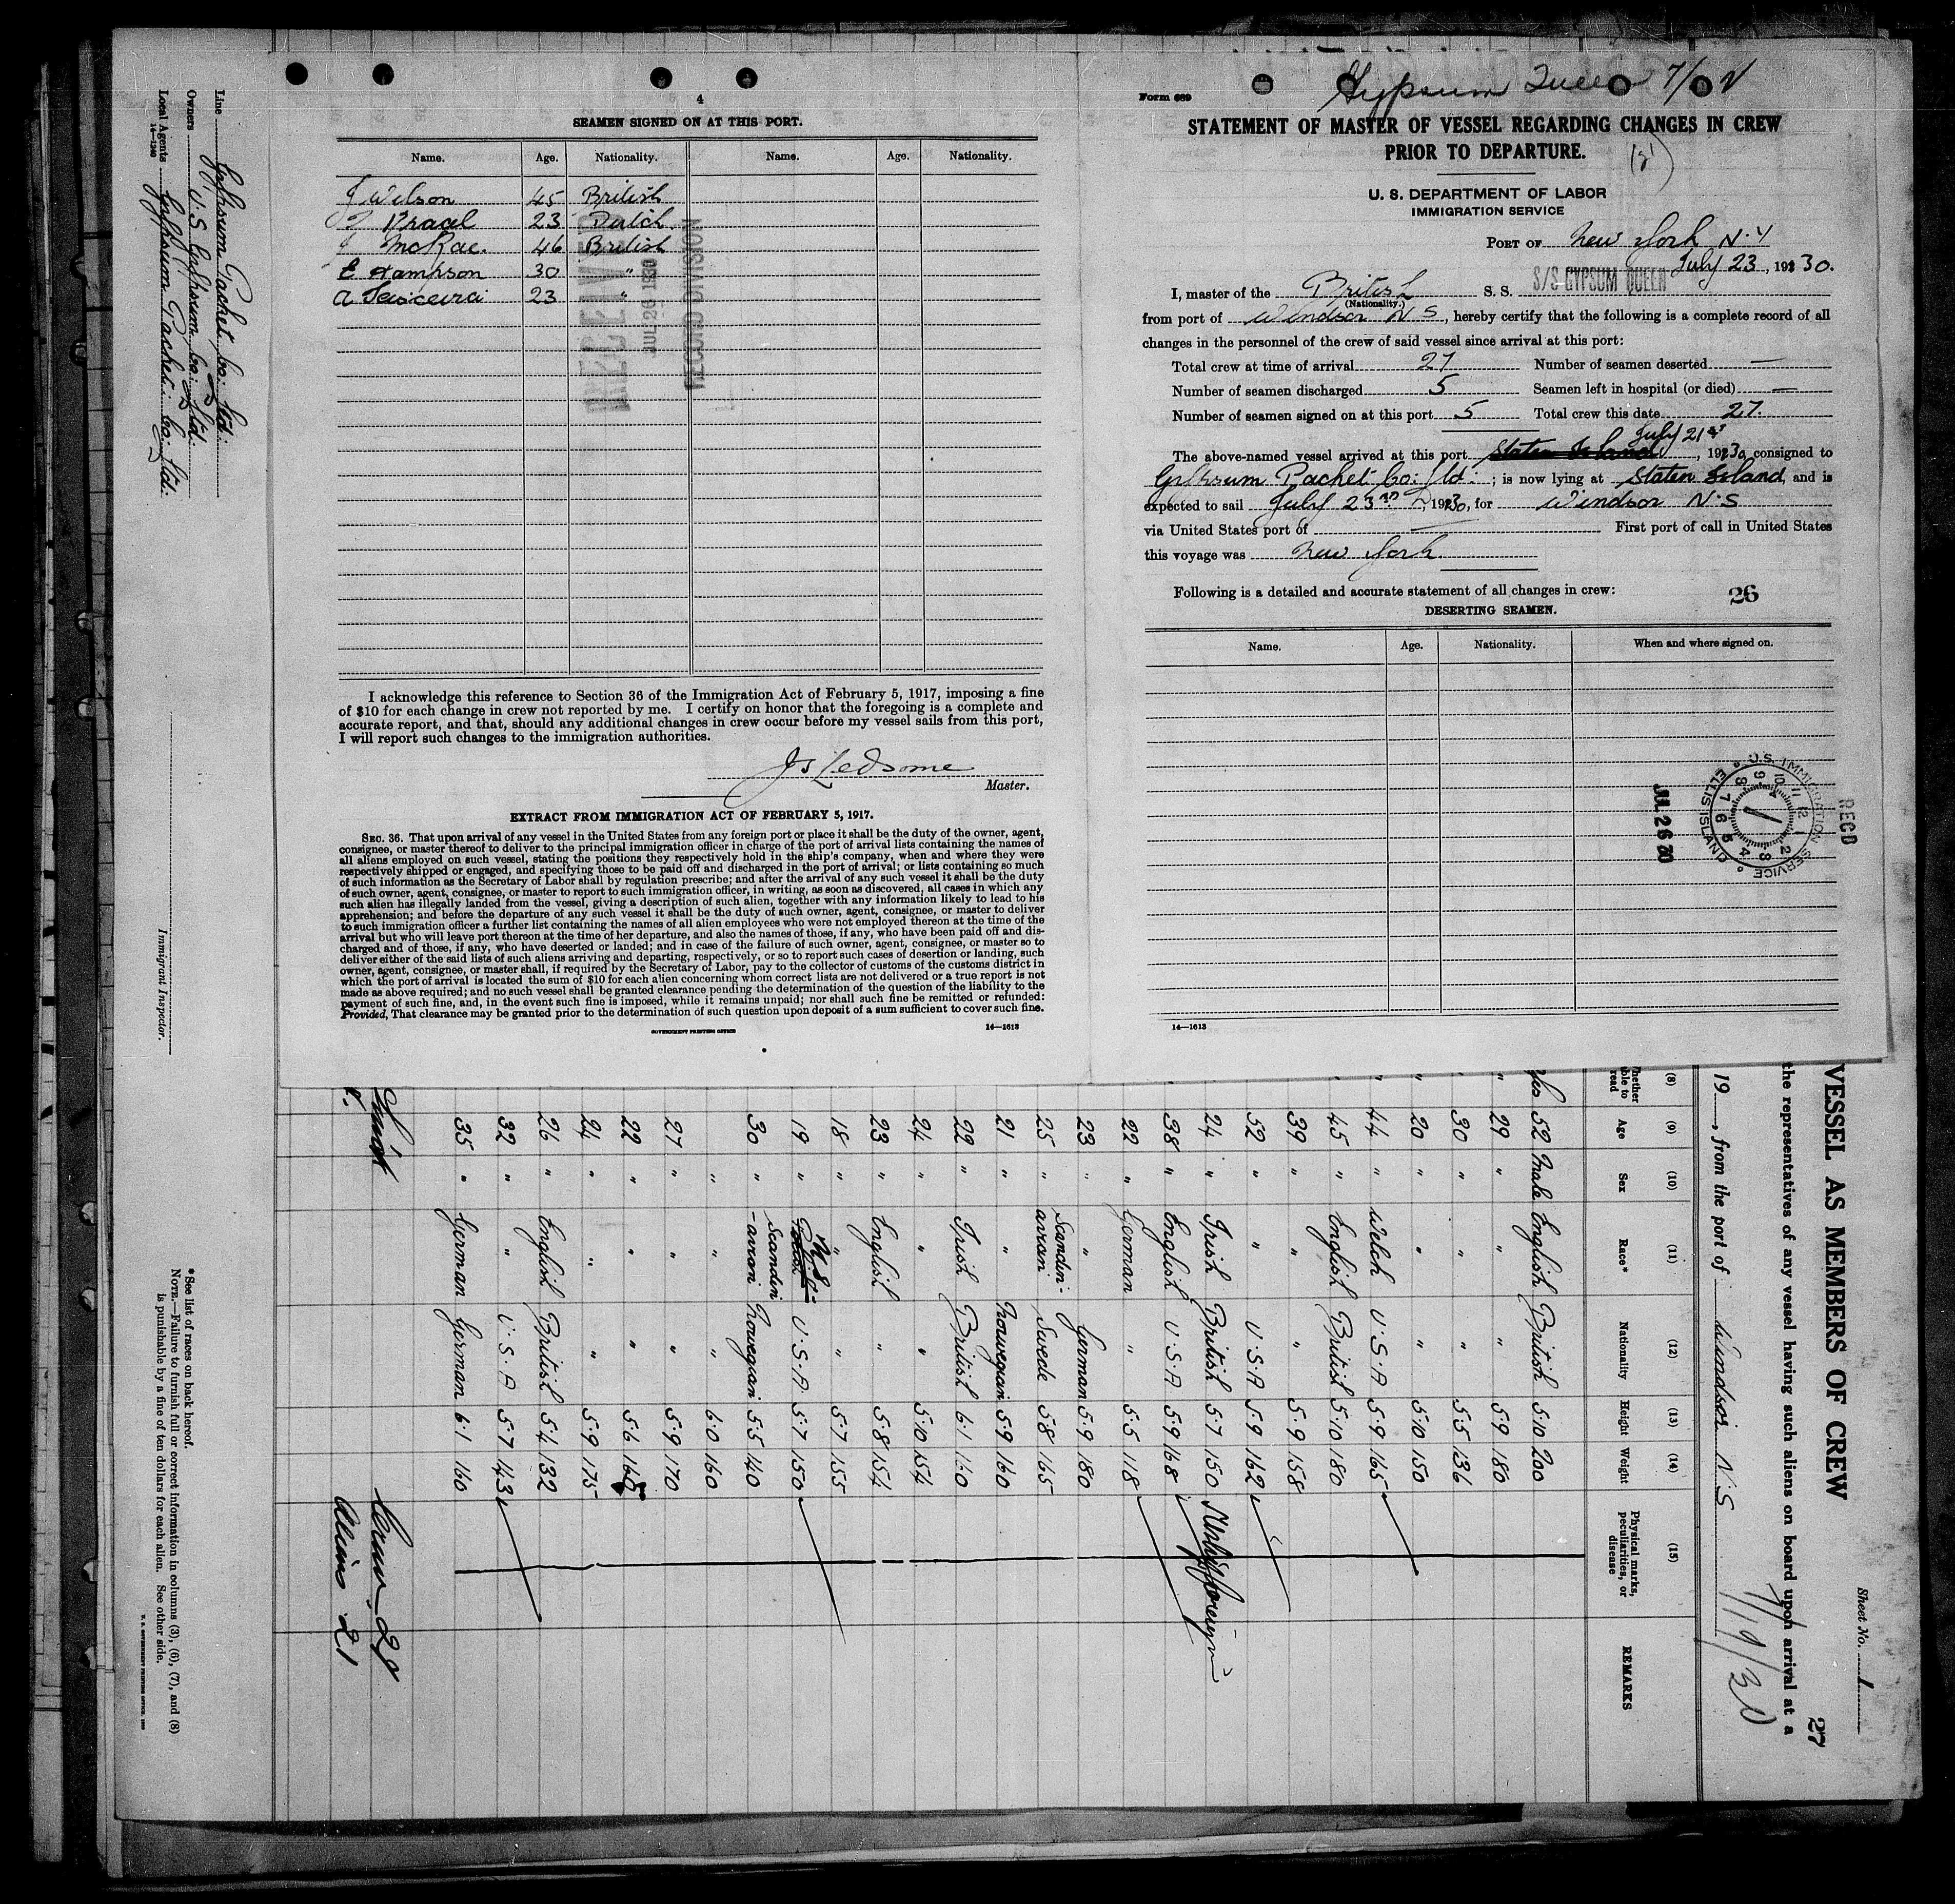 4
SEAMEN SIGNED ON AT THIS PORT.
Name. Age. Nationality. Name. Age. Nationality.
J Wilson 45 British
Braal 23 Dutch.
J McRae. 46 British
E Hampson 30 "
A Teixceira 23 "
RECEIVED
JUL 26 1930
RECORD DIVISION
I acknowledge this reference to Section 36 of the Immigration Act of February 5, 1917, imposing a fine
of $10 for each change in crew not reported by me. I certify on honor that the foregoing is a complete and
accurate report, and that, should any additional changes in crew occur before my vessel sails from this port,
I will report such changes to the immigration authorities.
Js Ledsome
Master.
EXTRACT FROM IMMIGRATION ACT OF FEBRUARY 5, 1917.
SEC. 36. That upon arrival of any vessel in the United States from any foreign port or place it shall be the duty of the owner, agent,
consignee, or master thereof to deliver to the principal immigration officer in charge of the port of arrival lists containing the names of
all aliens employed on such vessel, stating the positions they respectively hold in the ship's company, when and where they were
respectively shipped or engaged, and specifying those to be paid off and discharged in the port of arrival; or lists containing so much
of such information as the Secretary of Labor shall by regulation prescribe; and after the arrival of any such vessel it shall be the duty
of such owner, agent, consignee, or master to report to such immigration officer, in writing, as soon as discovered, all cases in which any
such alien has illegally landed from the vessel, giving a description of such alien, together with any information likely to lead to his
apprehension; and before the departure of any such vessel it shall be the duty of such owner, agent, consignee, or master to deliver
to such immigration officer a further list containing the names of all alien employees who were not employed thereon at the time of the
arrival but who will leave port thereon at the time of her departure, and also the names of those, if any, who have been paid off and dis-
charged and of those, if any, who have deserted or landed; and in case of the failure of such owner, agent, consignee, or master so to
deliver either of the said lists of such aliens arriving and departing, respectively, or so to report such cases of desertion or landing, such
owner, agent, consignee, or master shall, if required by the Secretary of Labor, pay to the collector of customs of the customs district in
which the port of arrival is located the sum of $10 for each alien concerning whom correct lists are not delivered or a true report is not
made as above required; and no such vessel shall be granted clearance pending the determination of the question of the liability to the
payment of such fine, and, in the event such fine is imposed, while it remains unpaid; nor shall such fine be remitted or refunded:
Provided, That clearance may be granted prior to the determination of such question upon deposit of a sum sufficient to cover such fine.
GOVERNMENT PRINTING OFFICE 14—1613
Gypsum Queen
Form 689
STATEMENT OF MASTER OF VESSEL REGARDING CHANGES IN CREW
PRIOR TO DEPARTURE.
U. S. DEPARTMENT OF LABOR
IMMIGRATION SERVICE
PORT OF New York N.Y
July 23, 1930.
I, master of the British S. S. S/S GYPSUM QUEEN
(Nationality.)
from port of Windsor N S, hereby certify that the following is a complete record of all
changes in the personnel of the crew of said vessel since arrival at this port:
Total crew at time of arrival 27 Number of seamen deserted —
Number of seamen discharged 5 Seamen left in hospital (or died) —
Number of seamen signed on at this port 5 Total crew this date 27.
July 21st
The above-named vessel arrived at this port Staten Island, 1930, consigned to
Gypsum Packet Co: Ltd: ; is now lying at Staten Island, and is
expected to sail July 23rd, 1930, for Windsor N.S
via United States port of — First port of call in United States
this voyage was New York
Following is a detailed and accurate statement of all changes in crew:
26
DESERTING SEAMEN.
Name. Age. Nationality. When and where signed on.
RECD
U.S. IMMIGRATION SERVICE
ELLIS ISLAND
JUL 26 30
14—1613
VESSEL AS MEMBERS OF CREW
Sheet No. 1
27
the representatives of any vessel having such aliens on board upon arrival at a
19, from the port of Windsor N.S 7/19/30
(8) (9) (10) (11) (12) (13) (14) (15)
Whether able to read Age Sex Race* Nationality Height Weight Physical marks, peculiarities, or disease REMARKS
Yes 52 Male English British 5.10 200
" 29 " " " 5.9 180
" 30 " " " 5.5 136
" 20 " " " 5.10 150
" 44 " Welch U.S.A 5.9 165
" 45 " English British 5.10 180
39 " " " 5.9 158
52 " " U.S.A 5.9 162
24 " Irish British 5.7 150
38 " English U.S.A 5.9 168
22 " German " 5.5 118
23 " " German 5.9 180
25 " Scandin-avian Swede 5.8 165
21 " " Norwegian 5.9 160
22 " Irish British 6.1 160
24 " " " 5.10 154
23 " English " 5.8 154
18 " " " 5.7 155
19 " U.S.A 5.7 150
30 " Scandin-avian Norwegian 5.5 140
" " " 6.0 160
27 " " " 5.9 170
22 " " " 5.6 165
24 " " " 5.9 175
26 " English British 5.4 132
32 " " U.S.A 5.7 143
35 " German German 6.1 160
Crew 29
Aliens 21
*See list of races on back hereof.
NOTE.—Failure to furnish full or correct information in columns (3), (6), (7), and (8)
is punishable by a fine of ten dollars for each alien. See other side.
Line Gypsum Packet Co: Ltd:
Owners U.S Gypsum Co: Ltd:
Local Agents Gypsum Packet Co: Ltd:
14—1240
Immigrant Inspector.